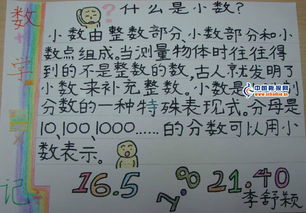 数学
记
什么是小数?
小数由整数部分、小数部分和小
数点组成。当测量物体时往往得
到的不是整数的数,古人就发明了
小数来补充整数。小数是
分数的一种特殊表现式。分母是
10,100,1000……的分数可以用小
数表示。
16.5
1.8
21.40
李舒颖
中国教视网